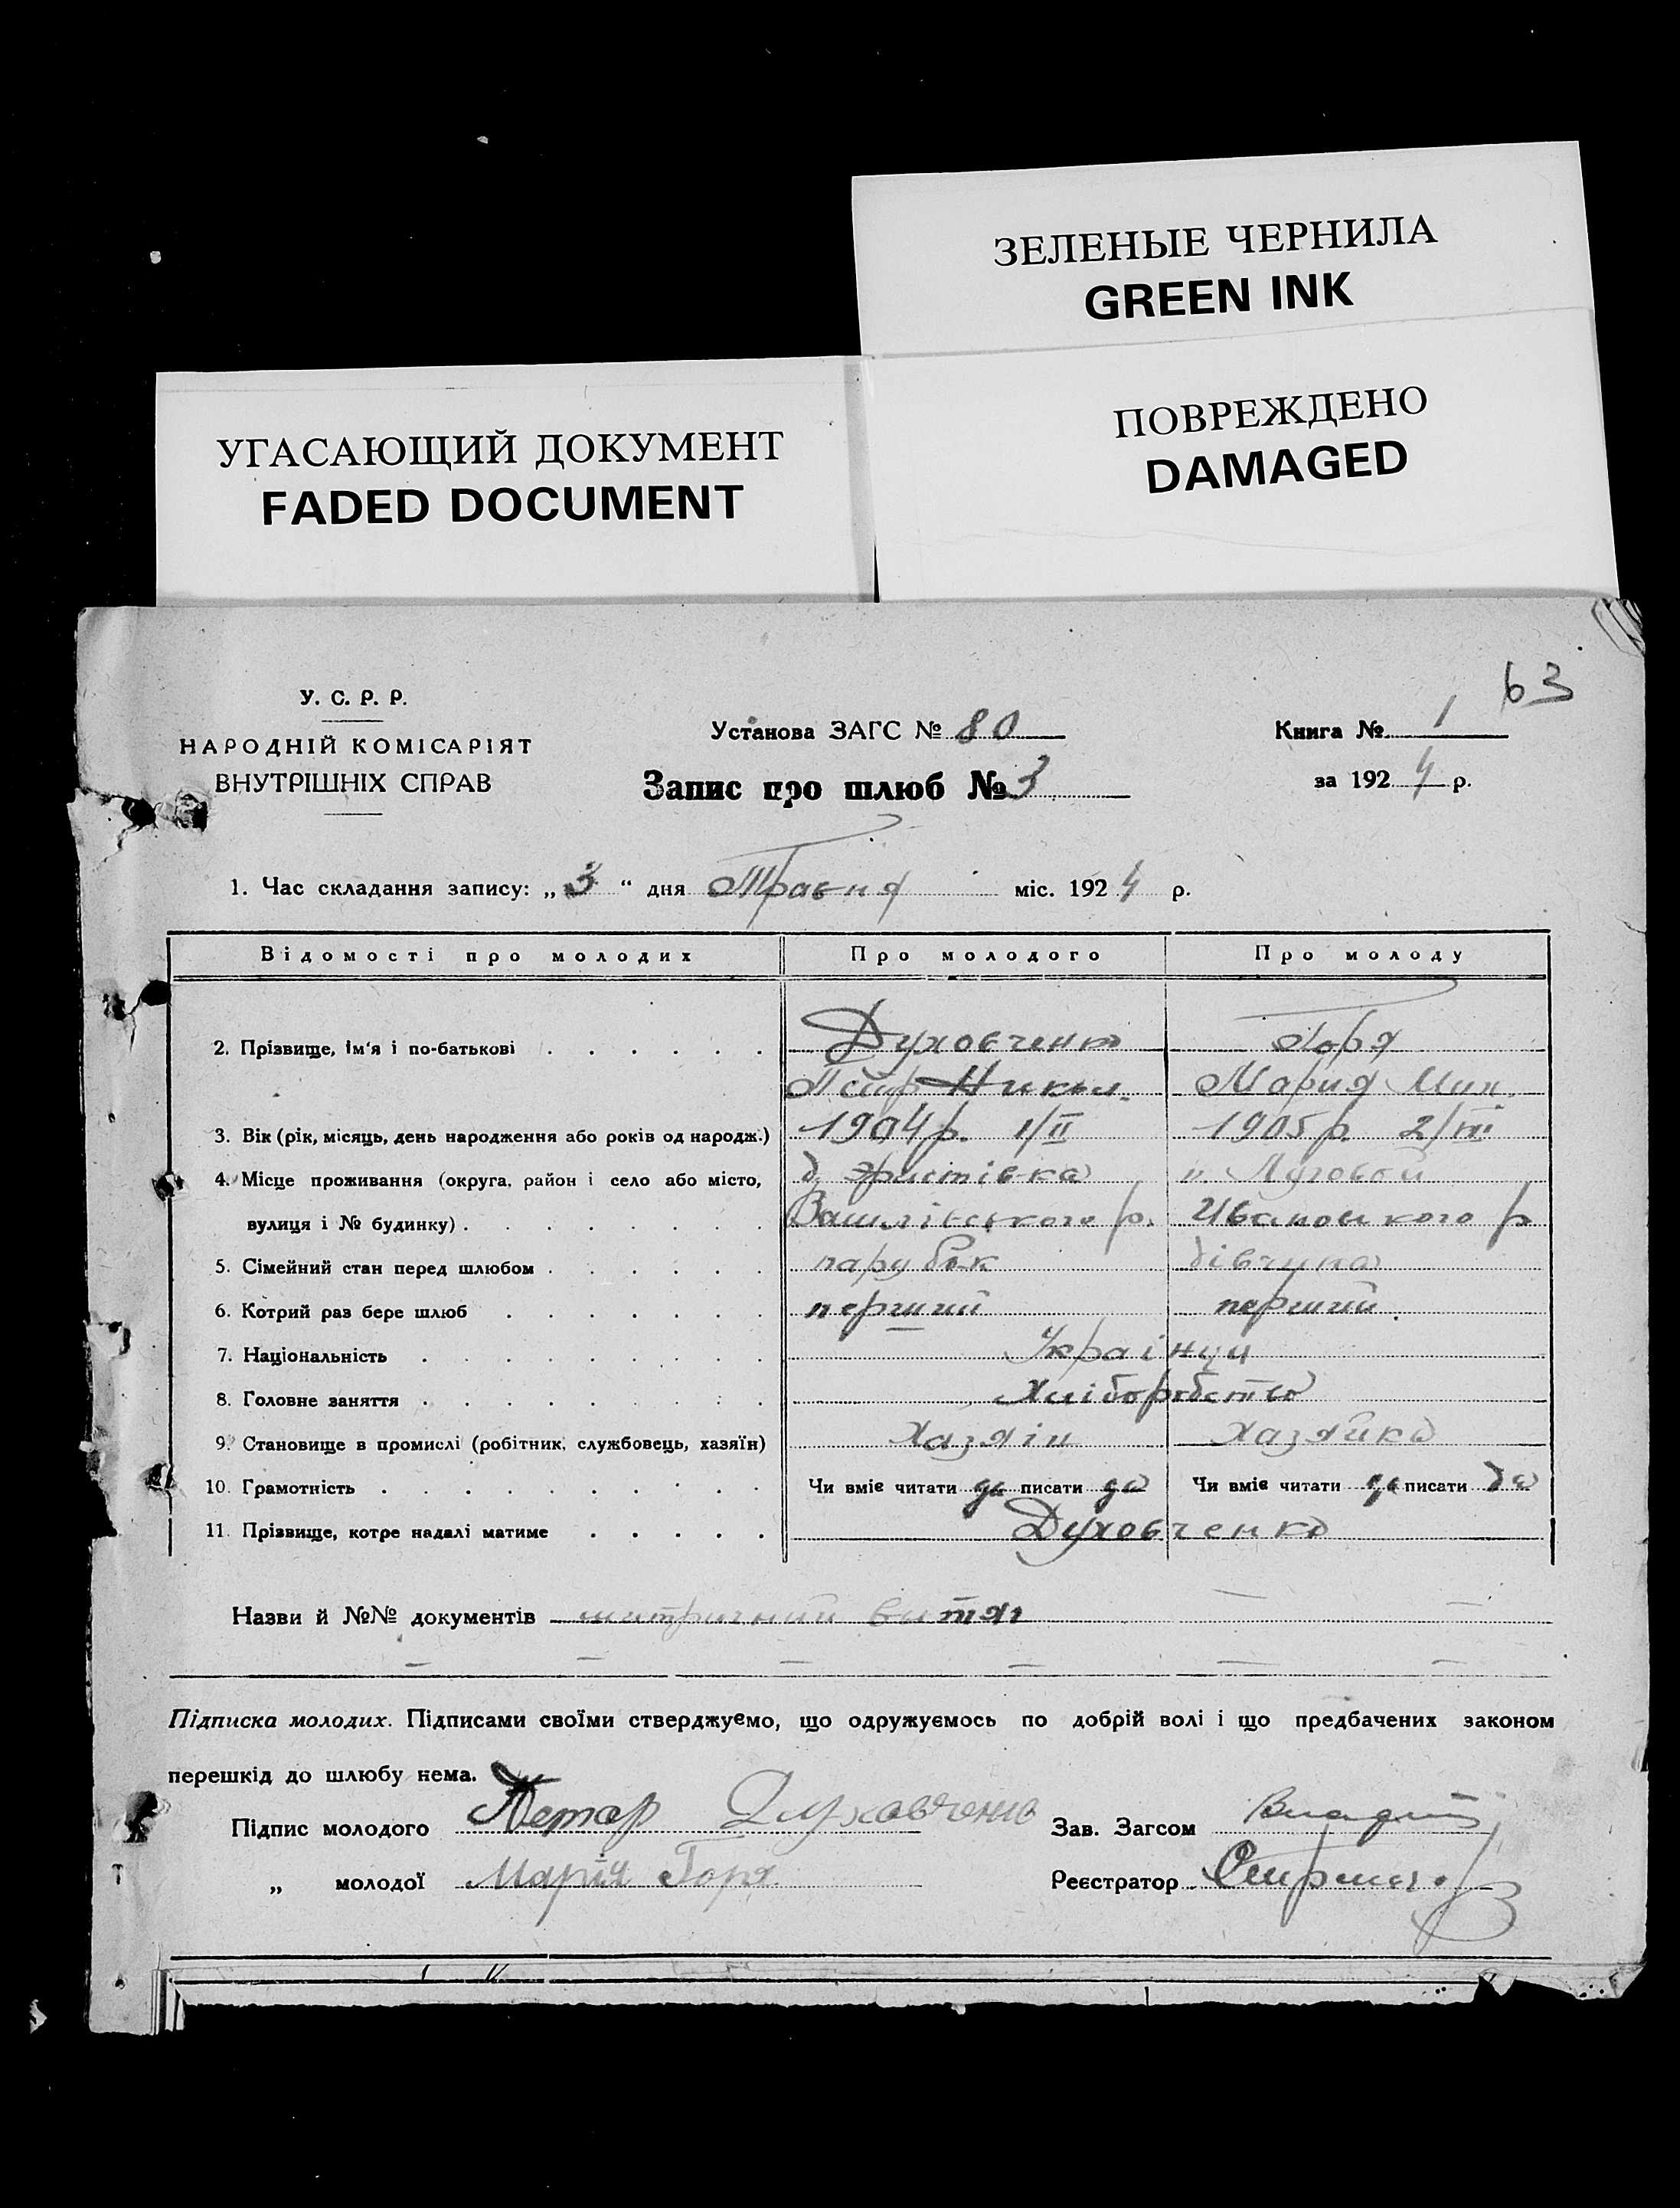 ЗЕЛЕНЫЕ ЧЕРНИЛА
GREEN INK
ПОВРЕЖДЕНО
DAMAGED
УГАСАЮЩИЙ ДОКУМЕНТ
FADED DOCUMENT
63
У. С. Р. Р.
НАРОДНІЙ КОМІСАРІЯТ
ВНУТРІШНІХ СПРАВ
Установа ЗАГС № 80
Запис про шлюб № 3
Книга № 1
за 1924 р.
1. Час складання запису: „3“ дня Травня міс. 1924 р.
Відомості про молодих Про молодого Про молоду
2. Прізвище, ім'я і по-батькові Духовченко Горя
Петр Никол. Мария Мих.
3. Вік (рік, місяць, день народження або років од народж.) 1904 р. 1/II 1905 р. 2/III
4. Місце проживання (округа, район і село або місто, д. Христівка Луговой
вулиця і № будинку) р. Ивановского р
5. Сімейний стан перед шлюбом парубок дівчина
6. Котрий раз бере шлюб перший перший
7. Національність Українци
8. Головне заняття Хліборобство
9. Становище в промислі (робітник, службовець, хазяїн) Хазяін Хазяйка
10. Грамотність Чи вміє читати да писати да Чи вміє читати да писати да
11. Прізвище, котре надалі матиме Духовченко
Назви й №№ документів метричний витяг
Підписка молодих. Підписами своїми стверджуємо, що одружуємось по добрій волі і що предбачених законом
перешкід до шлюбу нема.
Підпис молодого Петар Духовченко
Зав. Загсом
„ молодої Марія Горя
Реєстратор